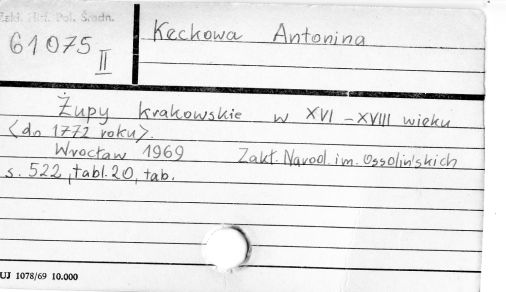 Zakł. Hist. Pol. Średn.
61075 II
Keckowa Antonina
Żupy krakowskie w XVI-XVIII wieku
<do 1772 roku>.
Wrocław 1969 Zakł. Narod. im. Ossolińskich
s. 522, tabl. 20, tab.
UJ 1078/69 10.000